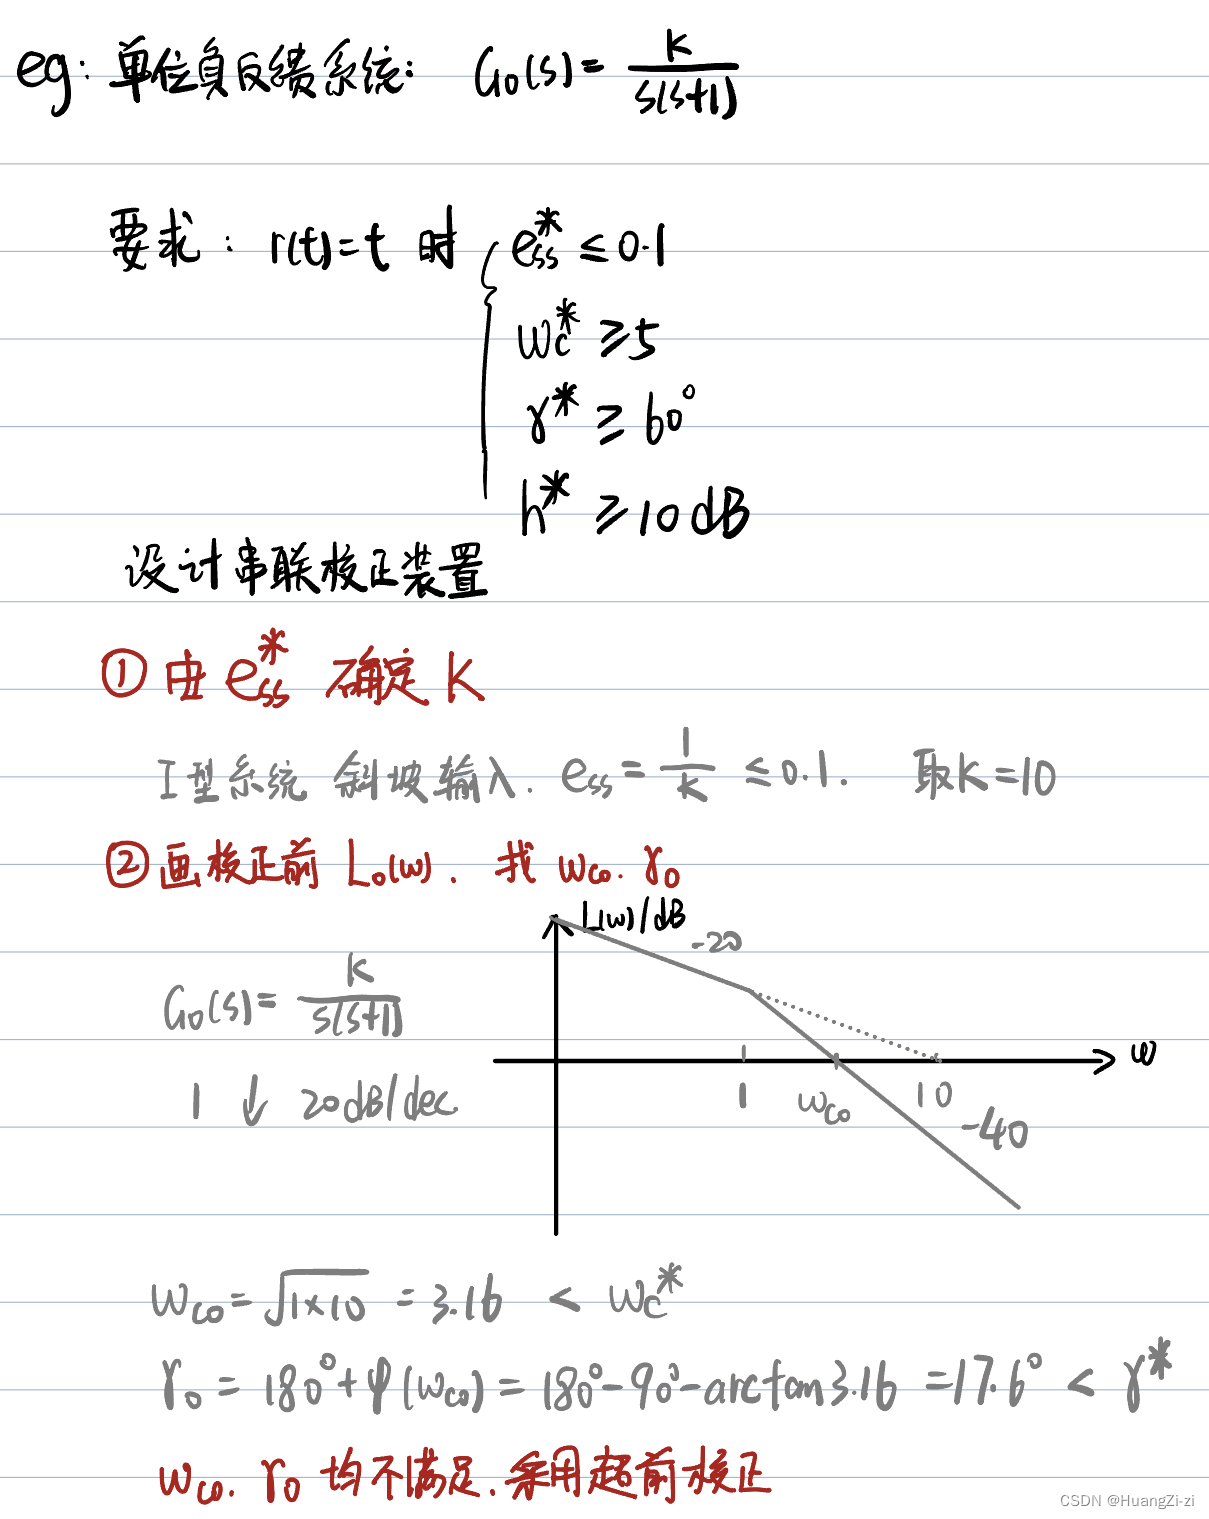 eg: 单位负反馈系统: G₀(s)= K/s(s+1)
要求: r(t)=t 时 { ess* ≤0.1
ωc* ≥5
γ* ≥ 60°
h* ≥10dB
设计串联校正装置
① 由 ess* 确定 K
I型系统 斜坡输入. ess = 1/K ≤0.1. 取K=10
② 画校正前 L₀(ω). 找 ωc₀. γ₀
L(ω)/dB
-20
G₀(s)= K/s(s+1)
1 ↓ 20dB/dec
ω
1 ωc₀ 10
-40
ωc₀ = √1×10 = 3.16 < ωc*
γ₀ = 180°+φ(ωc₀) = 180°-90°-arctan3.16 =17.6° < γ*
ωc₀. γ₀ 均不满足. 采用超前校正
CSDN @HuangZi-zi